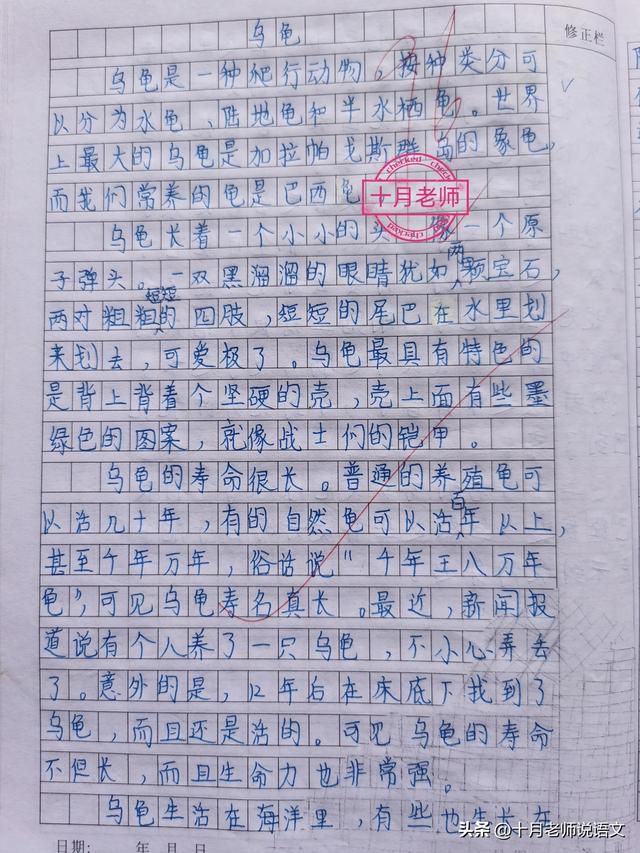 乌龟
修正栏
乌龟是一种爬行动物。按种类分可
以分为水龟、陆地龟和半水栖龟。世界
上最大的乌龟是加拉帕戈斯群岛的象龟,
而我们常养的龟是巴西龟
checked
十月老师
乌龟长着一个小小的头 像一个原
子弹头。一双黑溜溜的眼睛犹如两颗宝石,
两对粗粗短短的四肢,短短的尾巴在水里划
来划去,可爱极了。乌龟最具有特色的
是背上背着个坚硬的壳,壳上面有些墨
绿色的图案,就像战士们的铠甲。
乌龟的寿命很长。普通的养殖龟可
以活几十年,有的自然龟可以活百年以上,
甚至千年万年,俗话说"千年王八万年
龟",可见乌龟寿名真长。最近,新闻报
道说有个人养了一只乌龟,不小心弄丢
了。意外的是,12年后在床底下找到了
乌龟,而且还是活的。可见乌龟的寿命
不但长,而且生命力也非常强。
乌龟生活在海洋里,有些也生长在
日期: 年 月 日
头条@十月老师说语文